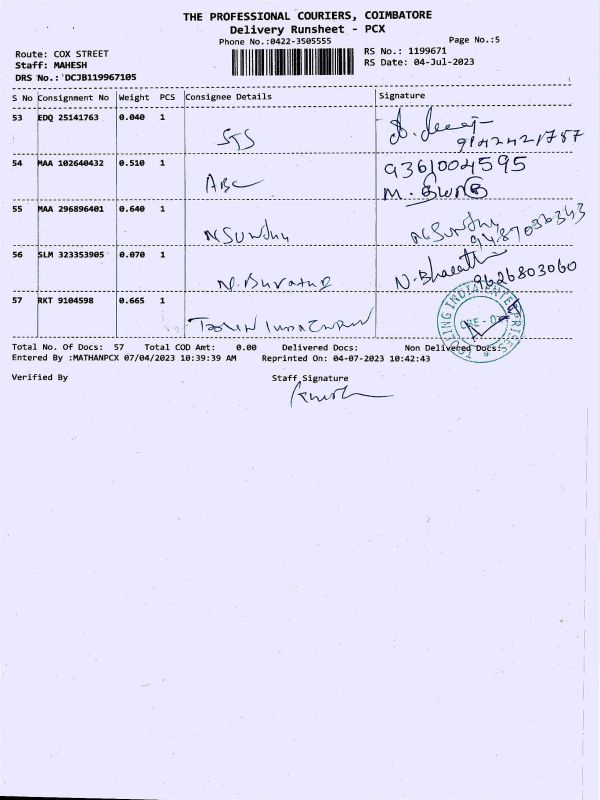 THE PROFESSIONAL COURIERS, COIMBATORE
Delivery Runsheet - PCX
Phone No.:0422-3505555
Page No.:5
Route: COX STREET
RS No.: 1199671
Staff: MAHESH
RS Date: 04-Jul-2023
DRS No.: DCJB119967105
S No Consignment No Weight PCS Consignee Details Signature
53 EDQ 25141763 0.040 1
STS
54 MAA 102640432 0.510 1 9361004595
ABC M.
55 MAA 296896401 0.640 1
N Sundhu N Sundhu
9487086343
56 SLM 323353905 0.070 1
N. Bharathi
9626803060
57 RKT 9104598 0.665 1
TOOLING INDIA ENTERPRISES
CBE
Total No. Of Docs: 57 Total COD Amt: 0.00 Delivered Docs: Non Delivered Docs:
Entered By :MATHANPCX 07/04/2023 10:39:39 AM Reprinted On: 04-07-2023 10:42:43
Verified By Staff Signature